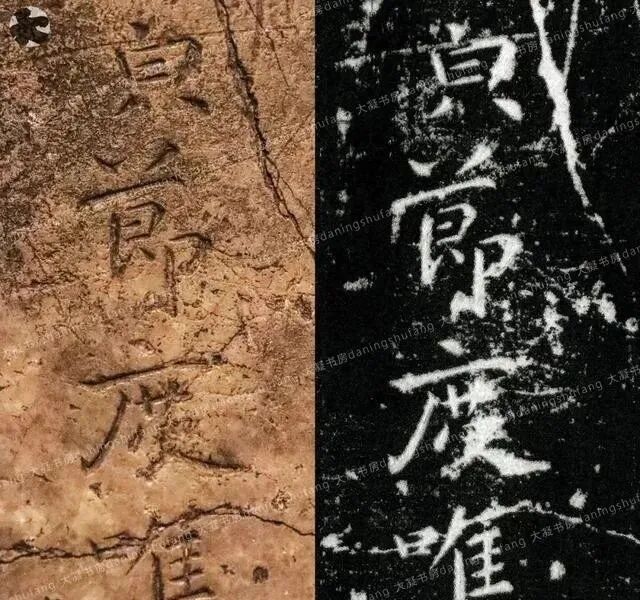 節度唯
節度唯
大凝书房daningshufang